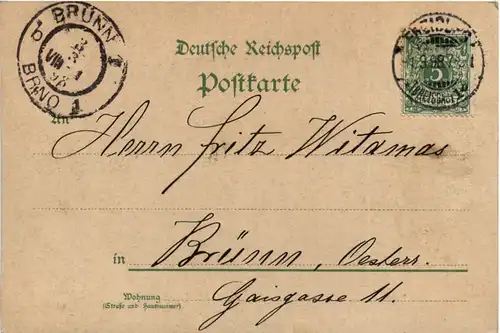 BRÜNN
BRNO
1
Deutsche Reichspost
Postkarte
5
An
Herrn Fritz Witamas
in Brünn, Oesterr.
Wohnung
(Straße und Hausnummer)
Gaisgasse 11.